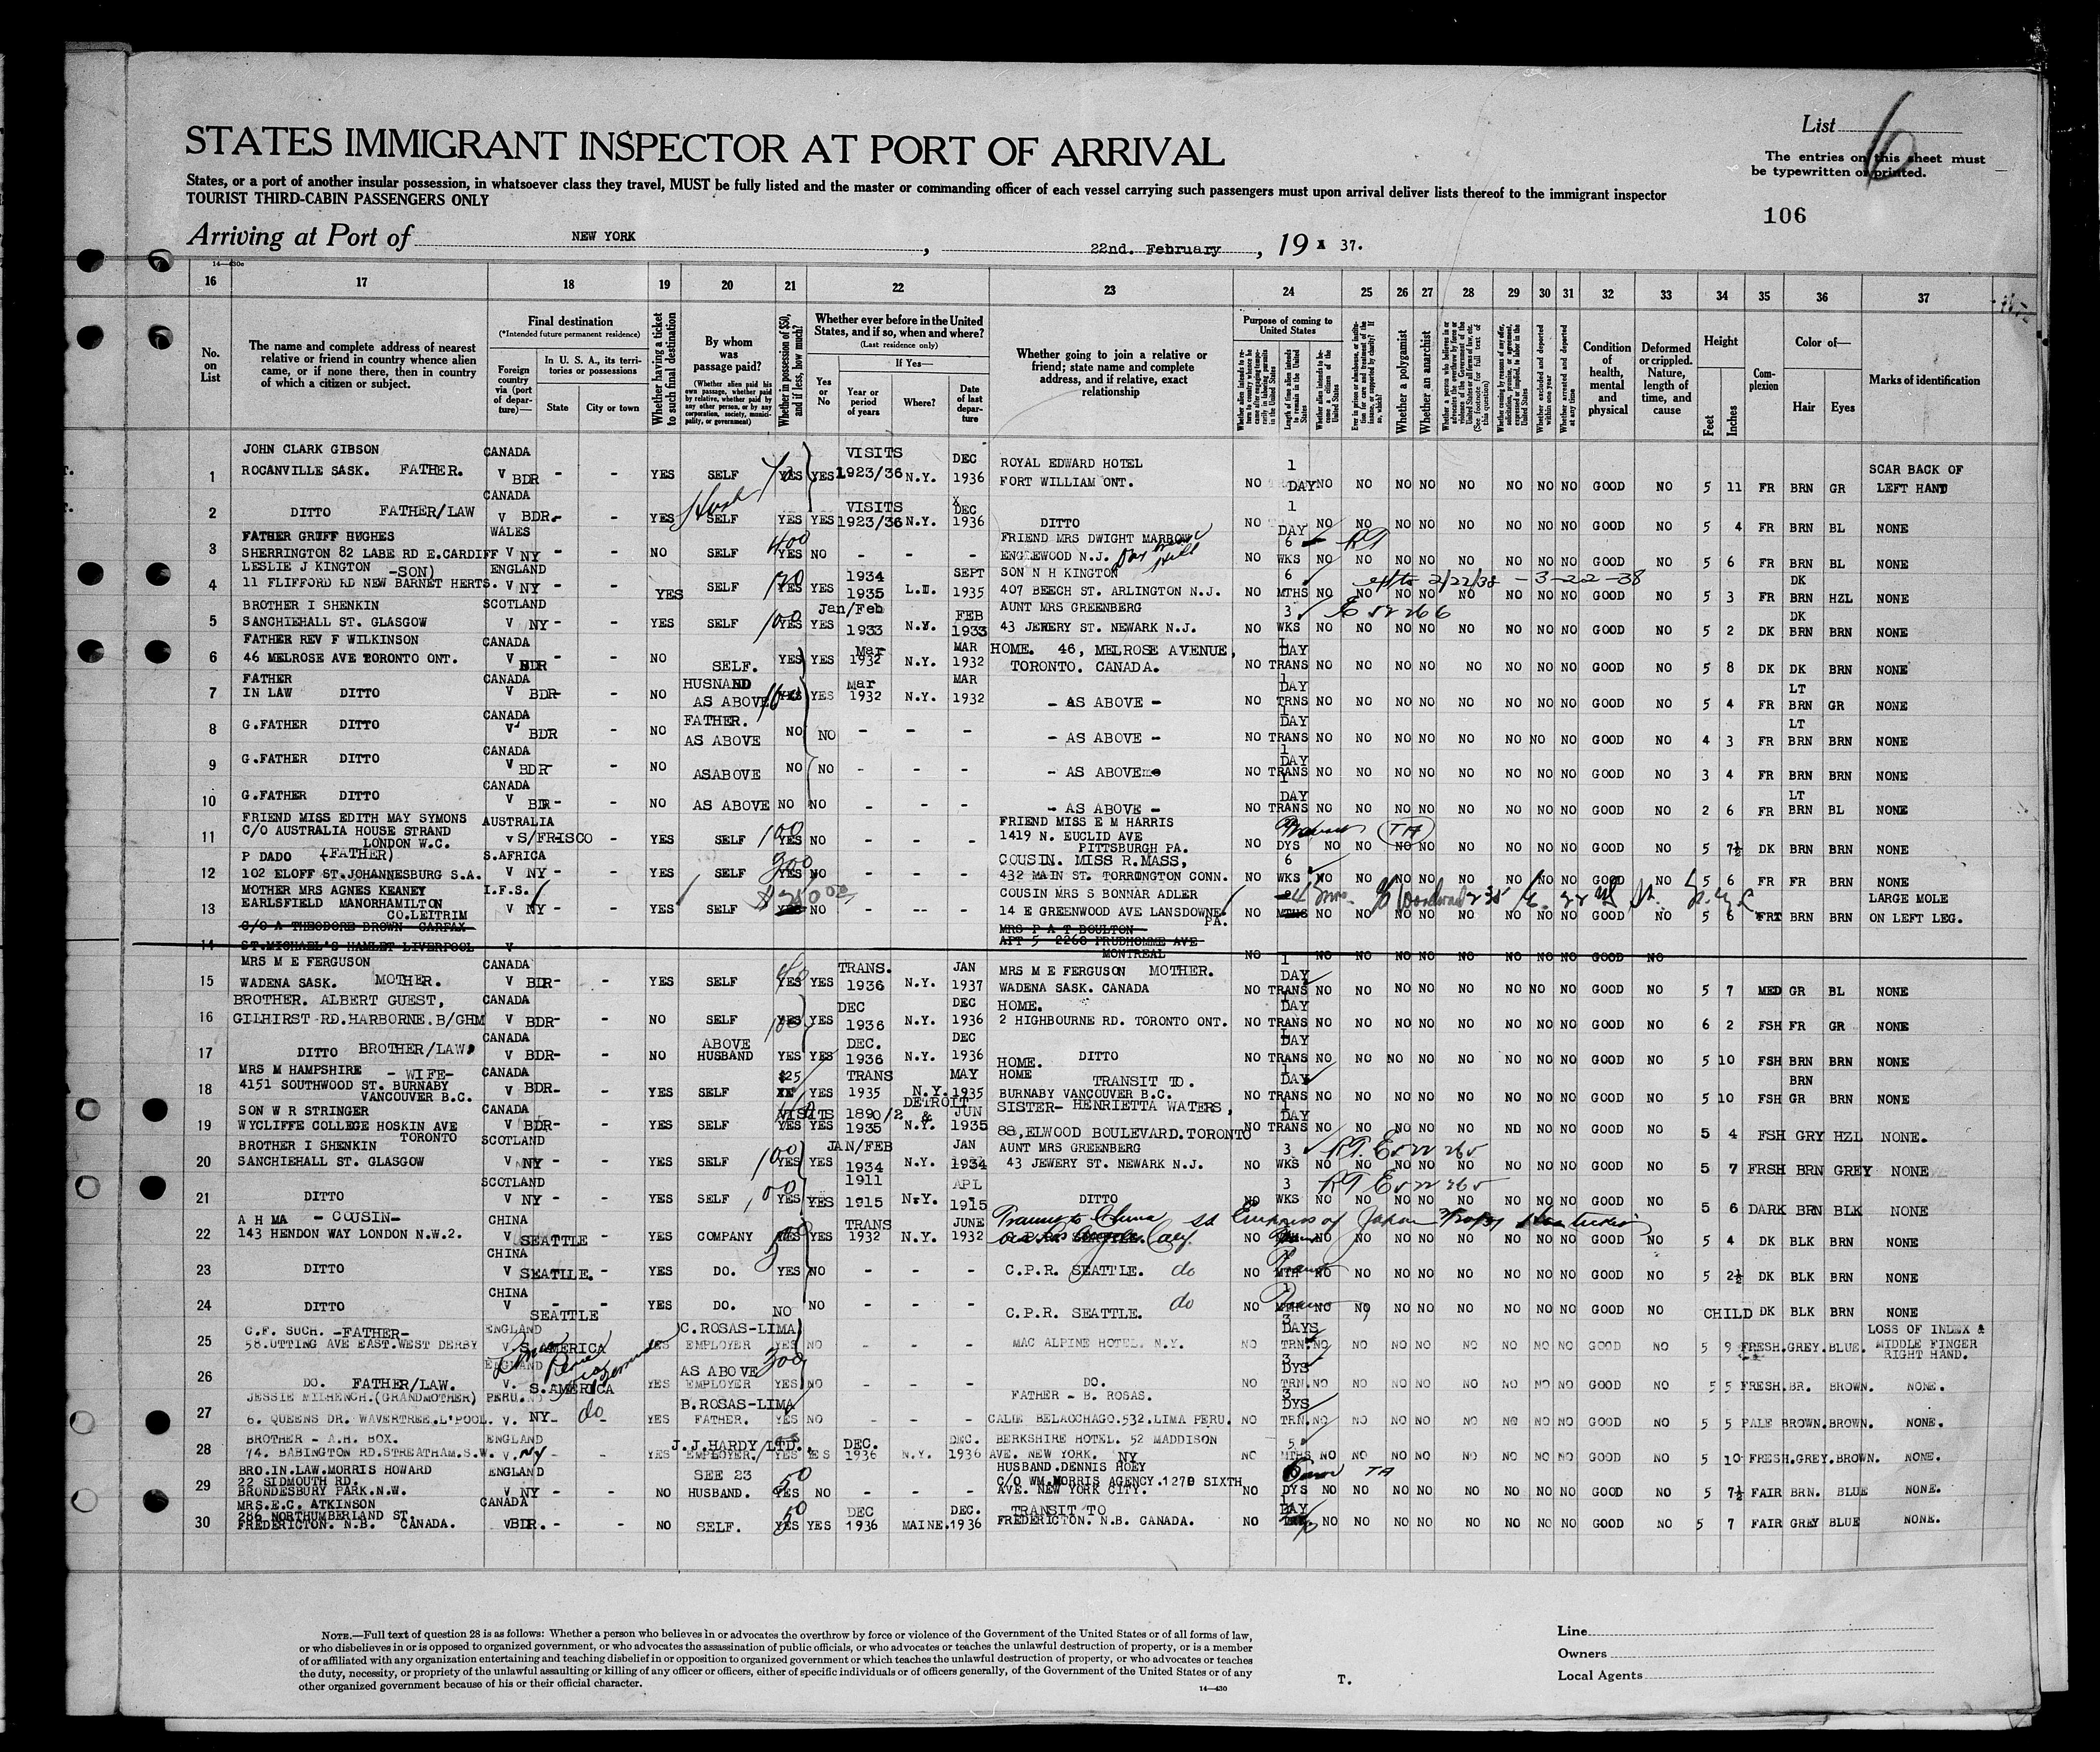 List 6
STATES IMMIGRANT INSPECTOR AT PORT OF ARRIVAL
The entries on this sheet must
be typewritten or printed.
States, or a port of another insular possession, in whatsoever class they travel, MUST be fully listed and the master or commanding officer of each vessel carrying such passengers must upon arrival deliver lists thereof to the immigrant inspector
TOURIST THIRD-CABIN PASSENGERS ONLY
106
Arriving at Port of NEW YORK, 22nd. February, 19 37.
16 17 18 19 20 21 22 23 24 25 26 27 28 29 30 31 32 33 34 35 36 37
No. on List
The name and complete address of nearest relative or friend in country whence alien came, or if none there, then in country of which a citizen or subject.
Final destination
(*Intended future permanent residence)
Foreign country via (port of departure)—
In U. S. A., its territories or possessions
State
City or town
Whether having a ticket to such final destination
By whom was passage paid?
(Whether alien paid his own passage, whether paid by relative, whether paid by any other person, or by any corporation, society, municipality, or government)
Whether in possession of $50, and if less, how much?
Whether ever before in the United States, and if so, when and where?
(Last residence only)
If Yes—
Yes or No
Year or period of years
Where?
Date of last departure
Whether going to join a relative or friend; state name and complete address, and if relative, exact relationship
Purpose of coming to United States
Whether a polygamist
Whether an anarchist
Condition of health, mental and physical
Deformed or crippled. Nature, length of time, and cause
Height
Feet
Inches
Complexion
Color of—
Hair
Eyes
Marks of identification
1 JOHN CLARK GIBSON ROCANVILLE SASK. FATHER. CANADA V BDR - - YES SELF YES YES VISITS 1923/36 N.Y. DEC 1936 ROYAL EDWARD HOTEL FORT WILLIAM ONT. NO 1 DAY NO NO NO NO NO NO NO NO GOOD NO 5 11 FR BRN GR SCAR BACK OF LEFT HAND
2 DITTO FATHER/LAW CANADA V BDR.- - YES SELF YES YES VISITS 1923/36 N.Y. DEC 1936 DITTO NO 1 DAY NO NO NO NO NO NO NO NO GOOD NO 5 4 FR BRN BL NONE
3 FATHER GRIFF HUGHES SHERRINGTON 82 LABE RD E.CARDIFF WALES V NY - - NO SELF 400 YES NO - - - FRIEND MRS DWIGHT MARROW ENGLEWOOD N.J. NO 6 WKS NO NO NO NO NO NO NO NO GOOD NO 5 6 FR BRN BL NONE
4 LESLIE J KINGTON -SON) 11 FLIFFORD RD NEW BARNET HERTS. ENGLAND V NY - - YES SELF YES YES 1934 1935 L.I. SEPT 1935 SON N H KINGTON 407 BEECH ST. ARLINGTON N.J. NO 6 MTHS NO NO NO NO NO NO NO NO GOOD NO 5 3 FR DK BRN HZL NONE
5 BROTHER I SHENKIN SANCHIEHALL ST. GLASGOW SCOTLAND V NY - - YES SELF 100 YES YES Jan/Feb 1933 N.Y. FEB 1933 AUNT MRS GREENBERG 43 JEWERY ST. NEWARK N.J. NO 3 WKS NO NO NO NO NO NO NO NO GOOD NO 5 2 DK DK BRN BRN NONE
6 FATHER REV F WILKINSON 46 MELROSE AVE TORONTO ONT. CANADA V BDR - NO SELF. YES YES Mar 1932 N.Y. MAR 1932 HOME. 46, MELROSE AVENUE, TORONTO. CANADA. NO 1 DAY TRANS NO NO NO NO NO NO NO NO GOOD NO 5 8 DK DK BRN NONE
7 FATHER IN LAW DITTO CANADA V BDR- - NO HUSNABD AS ABOVE YES YES Mar 1932 N.Y. MAR 1932 - AS ABOVE - NO 1 DAY TRNS NO NO NO NO NO NO NO NO GOOD NO 5 4 FR LT BRN GR NONE
8 G.FATHER DITTO CANADA V BDR - NO FATHER. AS ABOVE NO NO - - - - AS ABOVE - NO 1 DAY TRANS NO NO NO NO NO NO NO NO GOOD NO 4 3 FR LT BRN BRN NONE
9 G.FATHER DITTO CANADA V BDR- - NO ASABOVE NO NO - - - - AS ABOVE NO 1 DAY TRANS NO NO NO NO NO NO NO NO GOOD NO 3 4 FR BRN BRN NONE
10 G.FATHER DITTO CANADA V BDR - - NO AS ABOVE NO NO - - - - AS ABOVE - NO 1 DAY TRANS NO NO NO NO NO NO NO NO GOOD NO 2 6 FR LT BRN BL NONE
11 FRIEND MISS EDITH MAY SYMONS C/O AUSTRALIA HOUSE STRAND LONDON W.C. AUSTRALIA V S/FRISCO - YES SELF 100 YES NO - - - FRIEND MISS E M HARRIS 1419 N. EUCLID AVE PITTSBURGH PA. NO DYS NO NO NO NO NO NO NO NO GOOD NO 5 7½ DK BRN BRN NONE
12 P DADO (FATHER) 102 ELOFF ST.JOHANNESBURG S.A. S.AFRICA V NY - - YES SELF 300 YES NO - - - COUSIN. MISS R.MASS, 432 MAIN ST. TORRINGTON CONN. NO 6 WKS NO NO NO NO NO NO NO NO GOOD NO 5 6 FR FR BRN NONE
13 MOTHER MRS AGNES KEANEY EARLSFIELD MANORHAMILTON CO.LEITRIM I.F.S. V NY- - YES SELF YES NO - -- - COUSIN MRS S BONNAR ADLER 14 E GREENWOOD AVE LANSDOWNE PA. NO MTHS NO NO NO NO NO NO NO NO GOOD NO 5 6 FRT BRN BRN LARGE MOLE ON LEFT LEG.
14 C/O A THEODORE BROWN CARFAX ST.MICHAEL'S HAMLET LIVERPOOL V MRS P A T BOULTON APT 5 2260 PRUDHOMME AVE MONTREAL NO NO NO NO NO NO NO NO NO GOOD NO
15 MRS M E FERGUSON WADENA SASK. MOTHER. CANADA V BDR- - YES SELF 40 YES YES TRANS. 1936 N.Y. JAN 1937 MRS M E FERGUSON MOTHER. WADENA SASK. CANADA NO 1 DAY TRANS NO NO NO NO NO NO NO NO GOOD NO 5 7 MED GR BL NONE
16 BROTHER. ALBERT GUEST, GILHIRST RD.HARBORNE.B/GHM CANADA V BDR- - NO SELF YES YES DEC 1936 N.Y. DEC 1936 HOME. 2 HIGHBOURNE RD. TORONTO ONT. NO 1 DAY TRANS NO NO NO NO NO NO NO NO GOOD NO 6 2 FSH FR GR NONE
17 DITTO BROTHER/LAW CANADA V BDR- - NO ABOVE HUSBAND YES YES DEC. 1936 N.Y. DEC 1936 HOME. DITTO NO 1 DAY TRANS NO NO NO NO NO NO NO NO GOOD NO 5 10 FSH BRN BRN NONE
18 MRS M HAMPSHIRE -WIFE- 4151 SOUTHWOOD ST. BURNABY VANCOUVER B.C. CANADA V BDR- - YES SELF $25 YES TRANS 1935 N.Y. MAY 1935 HOME TRANSIT TO. BURNABY VANCOUVER B.C. NO 1 DAY TRANS NO NO NO NO NO NO NO NO GOOD NO 5 10 FSH GR BRN BRN NONE
19 SON W R STRINGER WYCLIFFE COLLEGE HOSKIN AVE TORONTO CANADA V BDR- - YES SELF YES YES VISITS 1890/2 1935 DETROIT & N.Y. JUN 1935 SISTER- HENRIETTA WATERS, 88,ELWOOD BOULEVARD.TORONTO NO 1 DAY TRANS NO NO NO NO NO NO NO NO GOOD NO 5 4 FSH GRY HZL NONE.
20 BROTHER I SHENKIN SANCHIEHALL ST. GLASGOW SCOTLAND V NY - - YES SELF 100 YES YES JAN/FEB 1934 N.Y. JAN 1934 AUNT MRS GREENBERG 43 JEWERY ST. NEWARK N.J. NO 3 WKS NO NO NO NO NO NO NO NO GOOD NO 5 7 FRSH BRN GREY NONE
21 DITTO SCOTLAND V NY - - YES SELF 100 YES YES 1911 1915 N.Y. APL 1915 DITTO NO 3 WKS NO NO NO NO NO NO NO NO GOOD NO 5 6 DARK BRN BLK NONE
22 A H MA -COUSIN- 143 HENDON WAY LONDON N.W.2. CHINA V SEATTLE - YES COMPANY YES YES TRANS 1932 N.Y. JUNE 1932 Transit to China SS Empress of Japan via Los Angeles Calif. NO NO NO NO NO NO NO NO NO GOOD NO 5 4 DK BLK BRN NONE
23 DITTO CHINA V SEATTLE. - YES DO. YES NO - - - C.P.R. SEATTLE. do NO MTH NO NO NO NO NO NO NO NO GOOD NO 5 2½ DK BLK BRN NONE
24 DITTO CHINA V SEATTLE - YES DO. NO NO - - - C.P.R. SEATTLE. do NO MTH NO NO NO NO NO NO NO NO GOOD NO CHILD DK BLK BRN NONE
25 C.F. SUCH. -FATHER- 58.UTTING AVE EAST.WEST DERBY ENGLAND V. S.AMERICA YES C.ROSAS-LIMA EMPLOYER YES NO - - - MAC ALPINE HOTEL. N.Y. NO 3 DAYS TRN. NO NO NO NO NO NO NO NO GOOD NO 5 9 FRESH.GREY.BLUE. LOSS OF INDEX & MIDDLE FINGER RIGHT HAND.
26 DO. FATHER/LAW. ENGLAND V. S.AMERICA YES AS ABOVE EMPLOYER 300 YES NO - - - DO. NO 3 DYS TRN. NO NO NO NO NO NO NO NO GOOD NO 5 5 FRESH.BR. BROWN. NONE.
27 JESSIE MILHENCH.(GRANDMOTHER) 6. QUEENS DR. WAVERTREE.L'POOL. PERU. V. NY- do - YES B.ROSAS-LIMA FATHER. YES NO - - - FATHER - B. ROSAS. CALIE BELAOCHAGO.532.LIMA PERU. NO 3 DYS TRN. NO NO NO NO NO NO NO NO GOOD NO 5 5 PALE BROWN.BROWN. NONE.
28 BROTHER - A.H. BOX. 74. BABINGTON RD.STREATHAM.S.W. ENGLAND V. NY - YES J.J.HARDY/LTD., EMPLOYER./ YES YES DEC. 1936 N.Y. DEC. 1936 BERKSHIRE HOTEL. 52 MADDISON AVE. NEW YORK. NY NO 5 MTHS NO NO NO NO NO NO NO NO GOOD NO 5 10 FRESH.GREY.BROWN. NONE.
29 BRO.IN.LAW.MORRIS HOWARD 22 SIDMOUTH RD. BRONDESBURY PARK.N.W. ENGLAND V NY - - NO SEE 23 HUSBAND. 50 YES NO - - - HUSBAND.DENNIS HOEY C/O WM.MORRIS AGENCY.1270 SIXTH AVE. NEW YORK CITY. NO DYS NO NO NO NO NO NO NO NO GOOD NO 5 7½ FAIR BRN. BLUE NONE.
30 MRS.E.C. ATKINSON 286 NORTHUMBERLAND ST. FREDERICTON. N.B. CANADA. CANADA VBDR. - - NO SELF. 50 YES YES DEC 1936 MAINE. DEC. 1936 TRANSIT TO FREDERICTON. N.B. CANADA. NO 1 DAY NO NO NO NO NO NO NO NO GOOD NO 5 7 FAIR GREY BLUE NONE.
NOTE.—Full text of question 28 is as follows: Whether a person who believes in or advocates the overthrow by force or violence of the Government of the United States or of all forms of law,
or who disbelieves in or is opposed to organized government, or who advocates the assassination of public officials, or who advocates or teaches the unlawful destruction of property, or is a member
of or affiliated with any organization entertaining and teaching disbelief in or opposition to organized government or which teaches the unlawful destruction of property, or who advocates or teaches
the duty, necessity, or propriety of the unlawful assaulting or killing of any officer or officers, either of specific individuals or of officers generally, of the Government of the United States or of any
other organized government because of his or their official character.
14—430
T.
Line
Owners
Local Agents